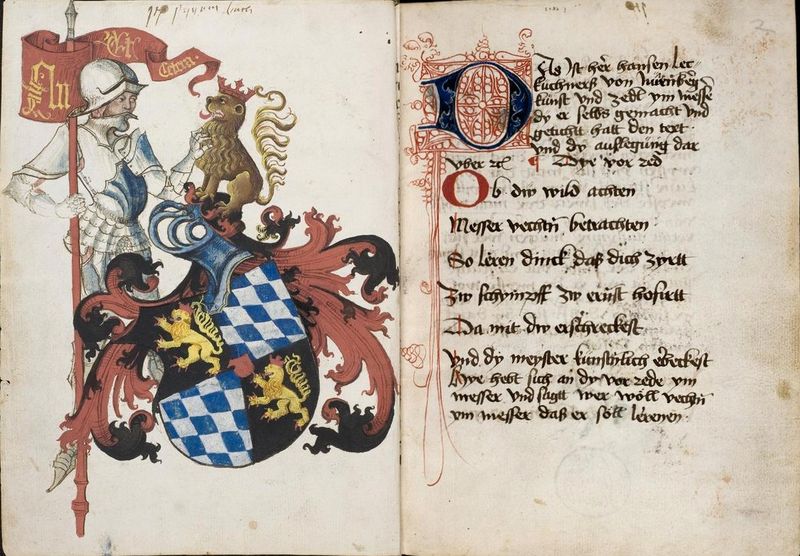 Das Ist her hansen lec
kuchners von Nurenberg
kunst vnd zedl ym messer
dy er selbs gemacht vnd
geticht hatt den text
vnd dy auslegung dar
vber
Dye vor red
Ob dw wild achten
Messer vechtn betrachten
So leren dinck daß dich zyrtt
Zw schympff zw ernst hofirtt
Da mit dw erschreckest
Vnd dy meyster kunstlich erweckest
Hye hebt sich an dy vor rede ym
messer vnd sagtt wer wöll vechtn
ym messer daß er söll lerenen